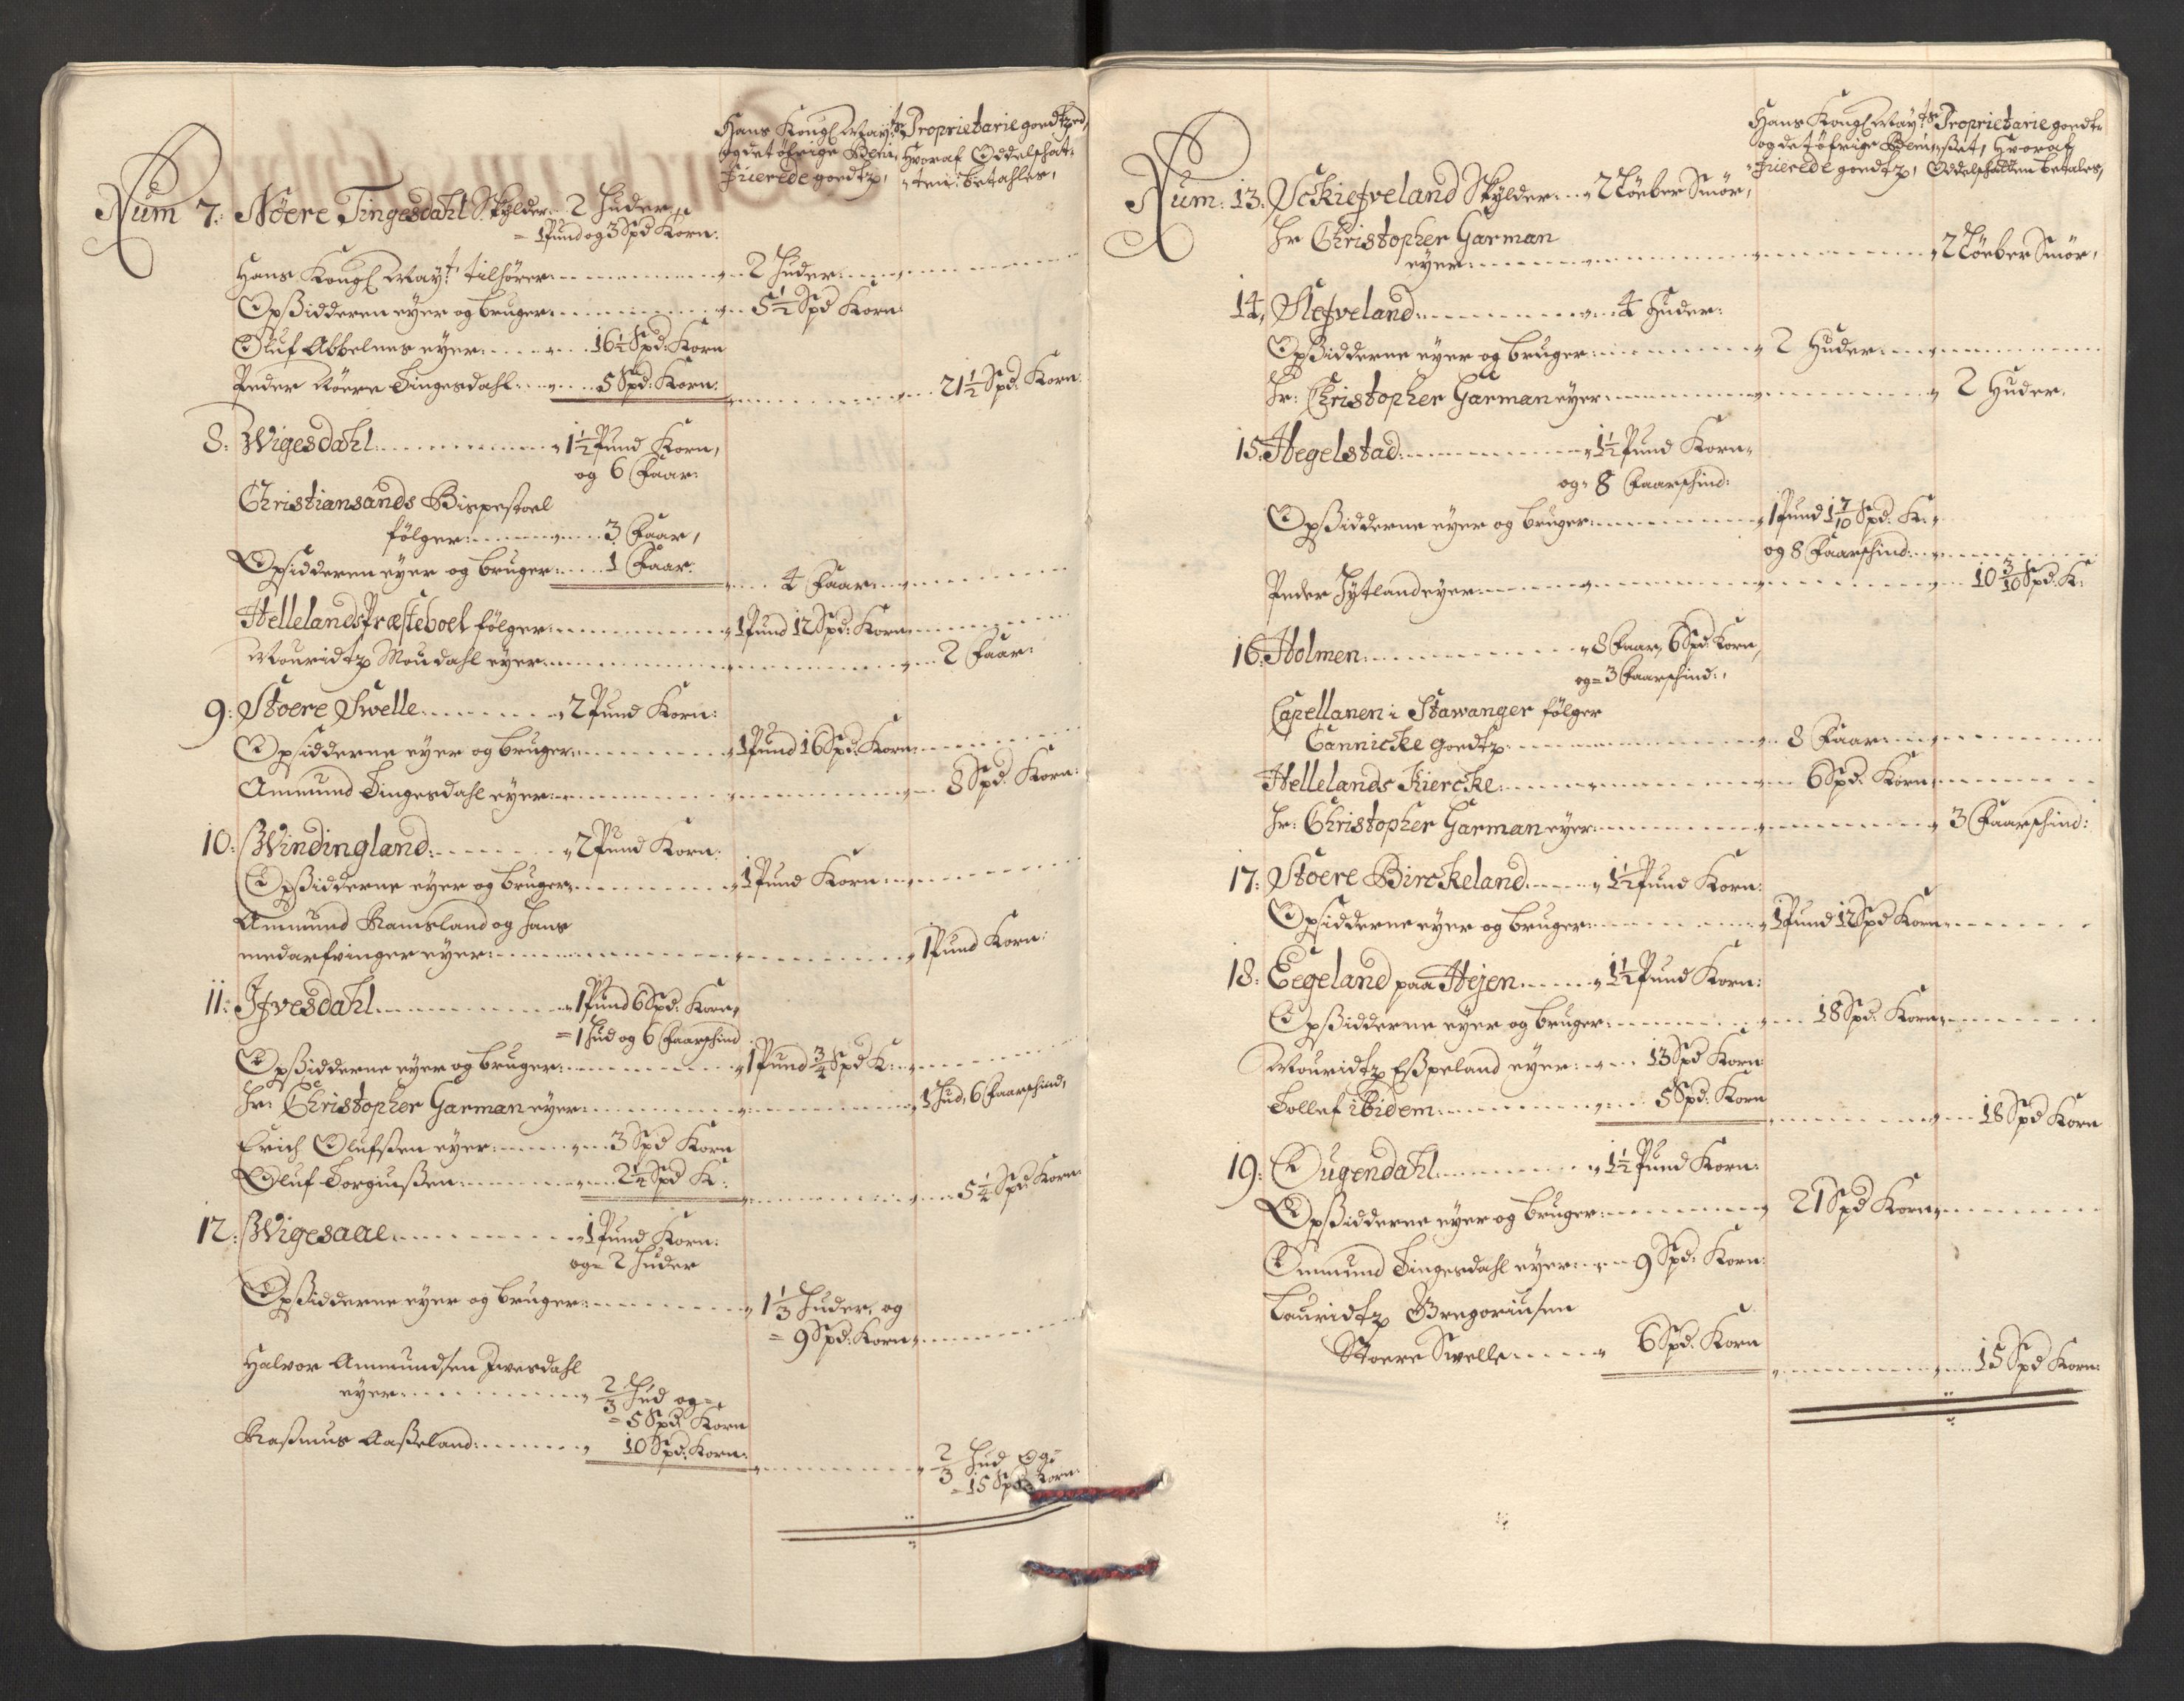 Hans Kongl May:ts Proprietarie goedtzed,
og det öfrige Beni, Hvoraf Oddelschat-
ficerede goedtz, ten betahles,
Num 7: Nöere Tingesdahl Skylder 2 Huder
= 1 Pund og 3 Spd Korn:
Hans Kongl May:t tilhörer 2 Huder
Opsidderen eyer og bruger 5 1/2 Spd Korn
Oluf Abbelnes eyer 16 1/2 Spd: Korn
Peder Nöere Tingesdahl 5 Spd: Korn. 21 1/2 Spd: Korn
8: Wigesdahl 1 1/2 Pund Korn,
og 6 Faar:
Christiansands Bispestoel
fölger 3 Faar,
Opsidderen eyer og bruger 1 Faar. 4 Faar
Hellelands Præsteboel fölger 1 Pund 12 Spd: Korn
Mouridtz Moudahl eyer 2 Faar:
9: Stoere Swelle 2 Pund Korn:
Opsidderne eyer og bruger 1 Pund 16 Spd: Korn
Ammund Tingesdahl eyer 8 Spd: Korn:
10: Windingland 2 Pund Korn:
Opsidderne eyer og bruger 1 Pund Korn
Ammund Ramsland og hans
medarfvinger eyer 1 Pund Korn:
11: Ifvesdahl 1 Pund 6 Spd: Korn,
= 1 Hud og 6 Faarschind
Opsidderne eyer og bruger 1 Pund 3/4 Spd K:
Hr: Christopher Garman eyer 1 Hud, 6 Faarschind,
Erich Olufsen eyer 3 Spd Korn
Oluf Torgiußen 2 1/4 Spd K: 5 1/4 Spd: Korn:
12: Wigesaae 1 Pund Korn:
og= 2 Huder
Opsidderne eyer og bruger 1 1/3 Huder, og
= 9 Spd: Korn
Halvor Ammundsen Ivesdahl
eyer 2/3 Hud og=
= 5 Spd Korn
Rasmus Aaßeland 10 Spd: Korn: 2/3 Hud og=
= 15 Spd: Korn:
Hans Kongl May:ts Proprietarie goedtz
og det öfrige Beni, Hvoraf
ficerede goedtz, Oddelschatten betales,
Num: 13: Sckiefveland Skylder 2 Löeber Smör,
Hr Christopher Garman
eyer 2 Löeber Smör,
14, Slefveland 4 Huder:
Opsidderne eyer og bruger 2 Huder
Hr: Christopher Garman eyer 2 Huder.
15: Hegelstad 1 1/2 Pund Korn
og= 8 Faarschind:
Opsidderne eyer og bruger 1 Pund 1 7/10 Spd. K:
og 8 Faarschind
Peder Jytland eyer 10 3/10 Spd. K:
16: Holmen 8 Faar, 6 Spd: Korn,
og= 3 Faarschind:,
Capellanen i Stawanger fölger
Cannicke goedtz 8 Faar
Hellelands Kiercke 6 Spd: Korn
Hr: Christopher Garman eyer 3 Faarschind:
17: Stoere Birckeland 1 1/2 Pund Korn:
Opsidderne eyer og bruger 1 Pund 12 Spd Korn
18: Eegeland paa Hejen 1 1/2 Pund Korn:
Opsidderne eyer og bruger 18 Spd: Korn
Mouridtz Eßpeland eyer 13 Spd Korn
Tollef ibidem 5 Spd: Korn 18 Spd Korn
19: Ougendahl 1 1/2 Pund Korn:
Opsidderne eyer og bruger 21 Spd Korn
Ommund Tingesdahl eyer 9 Spd: Korn:
Lauridtz Gregoriusen
Stoere Swelle 6 Spd: Korn 15 Spd Korn: